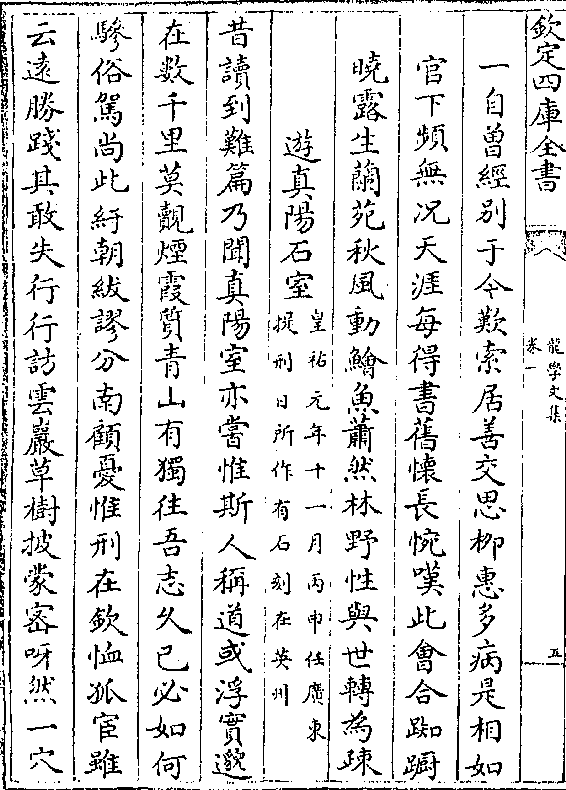 欽定四庫全書
龍學文集
卷一
五
一自曽經别于今歎索居善交思柳惠多病是相如
官下頻無况天涯每得書舊懐長惋嘆此㑹合踟蹰
曉露生蘭苑秋風動鱠魚蕭然林野性與世轉為疎
遊真陽石室
皇祐元年十一月丙申任廣東
提刑日所作有石刻在英州
昔讀到難篇乃聞真陽室亦嘗惟斯人稱道或浮實邈
在数千里莫覿煙霞質青山有獨往吾志久已必如何
驂俗駕尚此紆朝紱謬分南顧憂惟刑在欽恤狐宦雖
云逺勝踐其敢失行行訪雲巖草樹披蒙宻呀然一穴